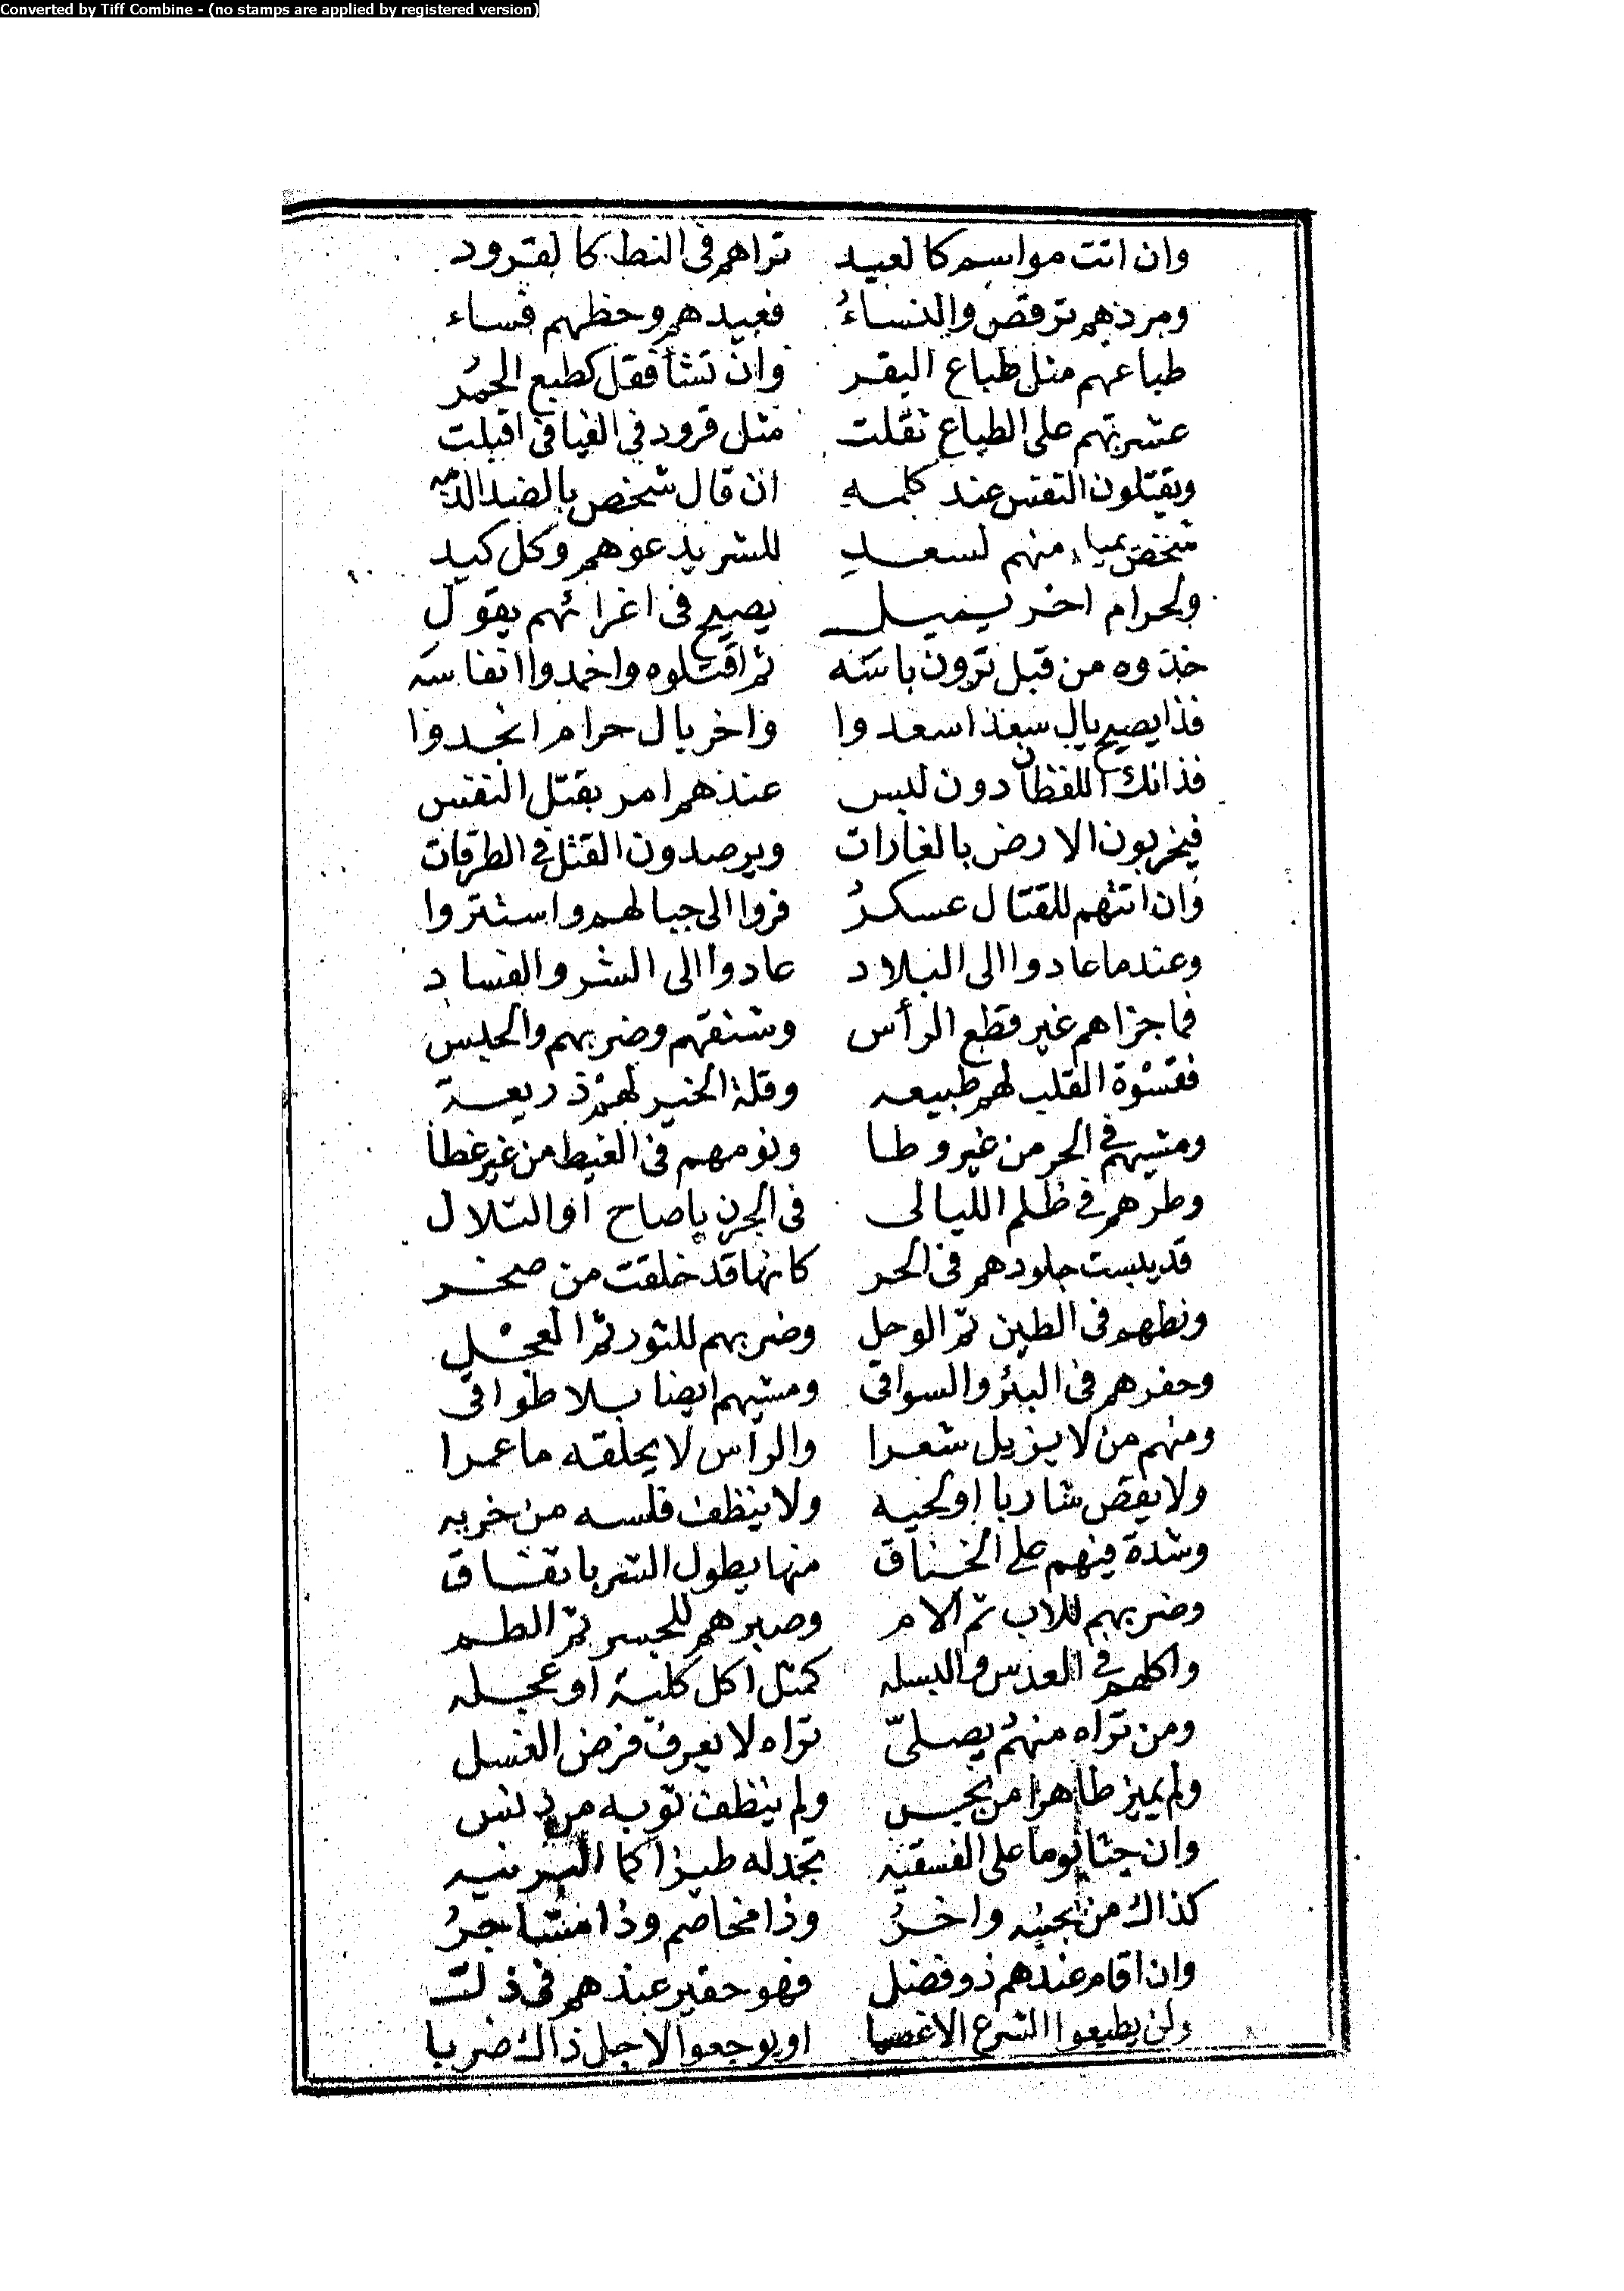 Converted by Tiff Combine - (no stamps are applied by registered version)
وان اتت مواسم كالعيد تراهم فى النط كالقرود
ومردهم ترقص والنساءُ فعيدهم وحظهم فساء
طباعهم مثل طباع البقر وان تشأ فقل كطبع الحمُر
عشرتهم على الطباع نقلت مثل قرود فى الفيافى اقبلت
ويقتلون النفس عند كلمه ان قال شخص بالضد الدمه
شخص يميل منهم لسعدِ للشر يدعوهم وكل كيد
ولحرام اخر يميل يصيح فى اغرائهم يقول
خذوه من قبل ترون باسه ثم اقتلوه واخمدوا انفاسه
فذا يصيح يال سعد اسعدوا واخر يال حرام انجدوا
فذانك اللفظان دون لبس عندهم امر بقتل النفس
فيخربون الارض بالغارات ويرصدون القتل فى الطرقات
وان اتتهم للقتال عسكرُ فروا الى جبالهم واستتروا
وعندما عادوا الى البلاد عادوا الى الشر والفساد
فما جزاهم غير قطع الرأس وشنقهم وضربهم والحبس
فقسوة القلب لهم طبيعه وقلة الخير لهم ذريعة
ومشيهم فى الحر من غير وطا ونومهم فى الغيط من غير غطا
وطرهم فى ظلم الليالى فى الجرن ياصاح او التلال
قد يبست جلودهم فى الحر كانها قد خلقت من صخر
ونطهم فى الطين ثم الوحل وضربهم للثور ثم العجل
وحفرهم فى البئر والسواقى ومشيهم ايضا بلا طواقى
ومنهم من لا يزيل شعرا والرأس لا يحلقه ما عمرا
ولا يقص شاربا او لحيه ولا ينظف فلسه من خريه
وشدة فيهم على الخناق منها يطول الشر باتفاق
وضربهم للاب ثم الام وصبرهم للجسر ثم الطم
واكلهم فى العدس والبسله كمثل اكل كلبة او عجله
ومن تراه منهمُ يصلىّ تراه لا يعرف فرض الغسل
ولم يميز طاهرا من نجس ولم ينظف ثوبه من دنس
وان جثا يوما على الفسقيه تجد له طيزا كما البرنيه
كذاك من بجنبه واخرُ وذا مخاصم وذا مشاجرُ
وان اقام عندهم ذو فضل فهو حقير عندهم فى ذل
ولن يطيعوا الشرع الا غصبا او يوجعوا لاجل ذاك ضربا